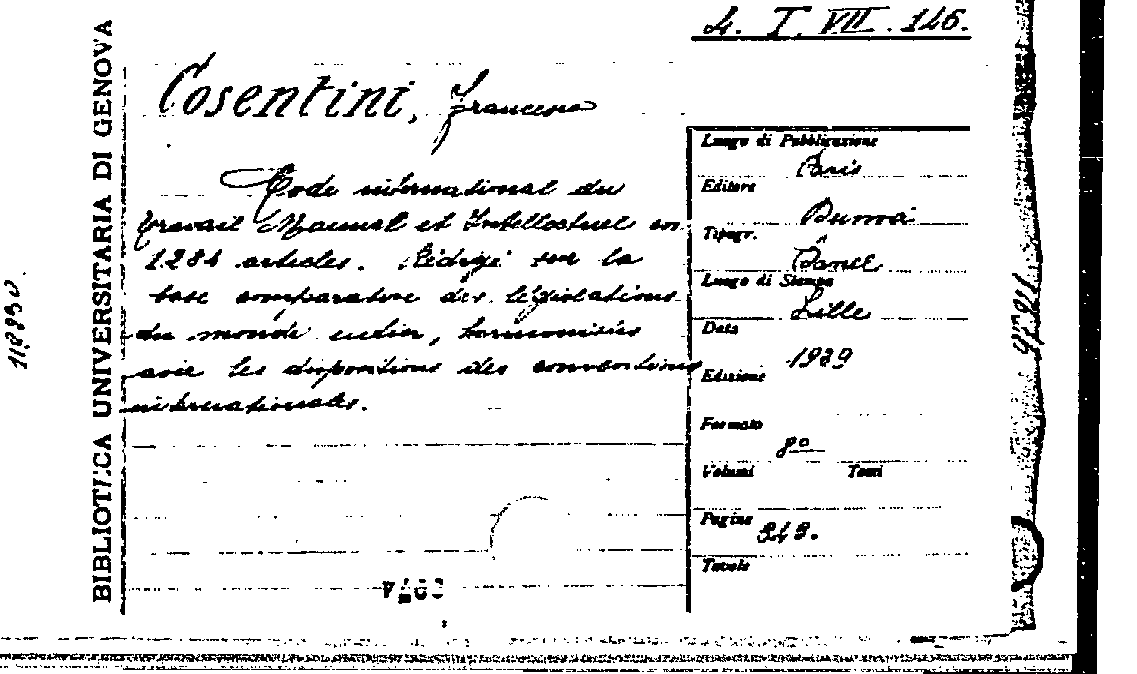 4. I. VII. 146.
BIBLIOTECA UNIVERSITARIA DI GENOVA
Cosentini, Francesco
Code international du
travail Manuel et Intellectuel en
1284 articles. Rédigé sur la
base comparative des législations
du monde entier, harmonisées
avec les dispositions des conventions
internationales.
Luogo di Pubblicazione
Paris
Editore
Tipogr.
Luogo di Stampa
Lille
Data
1939
Edizione
Formato
8º
Volumi Tomi
Pagine
Tavole